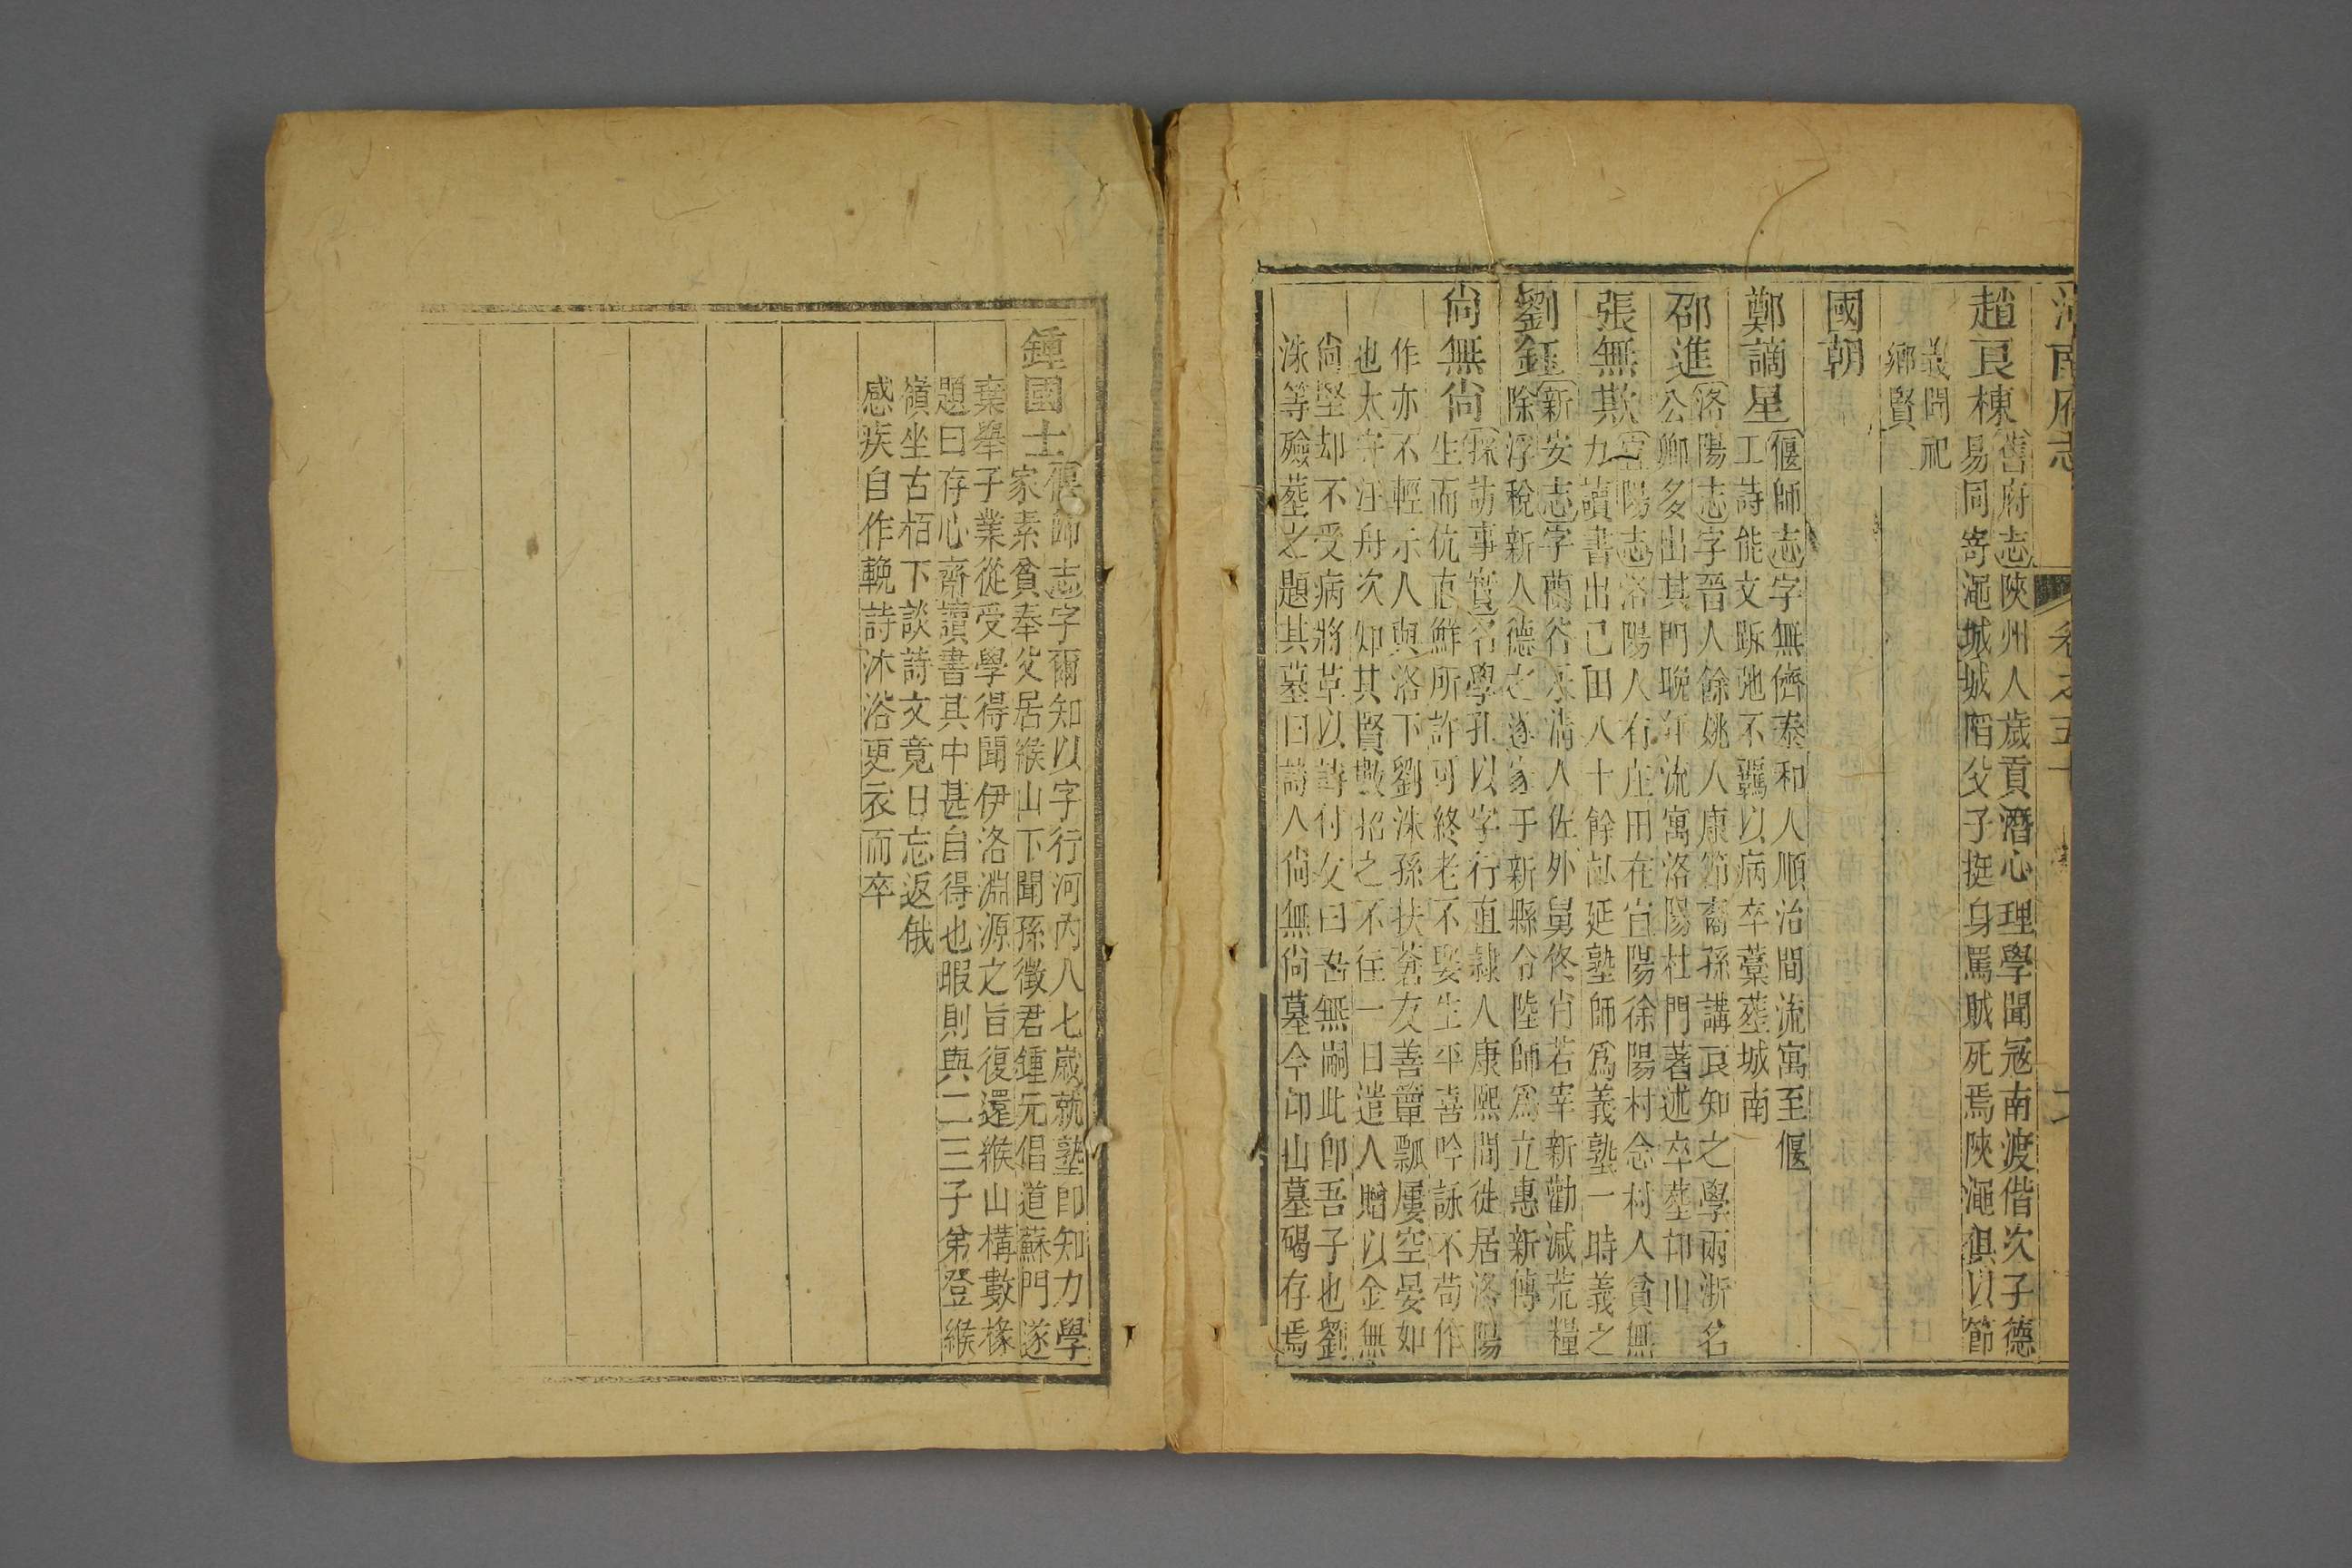 河南府志 卷之五十
趙良棟舊府志陝州人歲貢潛心理學聞寇南渡偕次子德
易同寄澠城城陷父子挺身罵賊死焉陝澠俱以節
義聞祀
鄉賢
國朝
鄭謫星偃師志字無儕泰和人順治間流寓至偃
工詩能文跅弛不羈以病卒藁葬城南
邵進洛陽志字晉人餘姚人康節裔孫講良知之學兩浙名
公卿多出其門晚年流寓洛陽杜門著述卒葬邙山
張無欺宜陽志洛陽人有庄田在宜陽徐陽村念村人貧無
力讀書出已田八十餘畝延塾師爲義塾一時義之
劉鈺新安志字蘭谷永清人佐外舅佟肖若宰新勸減荒糧
除浮稅新人德之遂家于新縣令陸師爲立惠新傳
尙無尙採訪事實名學孔以字行直隸人康熙間徙居洛陽
生而伉直鮮所許可終老不娶生平喜吟詠不苟作
作亦不輕示人與洛下劉洙孫扶蒼友善簞瓢屢空晏如
也太守汪舟次知其賢數招之不往一日遣人贈以金無
尙堅却不受病將革以詩付友曰吾無嗣此卽吾子也劉
洙等殮葬之題其墓曰詩人尙無尙墓今邙山墓碣存焉
鍾國士偃師志字爾知以字行河內人七歲就塾卽知力學
家素貧奉父居緱山下聞孫徵君鍾元倡道蘇門遂
棄舉子業從受學得聞伊洛淵源之旨復還緱山構數椽
題曰存心齋讀書其中甚自得也暇則與二三子弟登緱
嶺坐古栢下談詩文竟日忘返俄
感疾自作輓詩沐浴更衣而卒